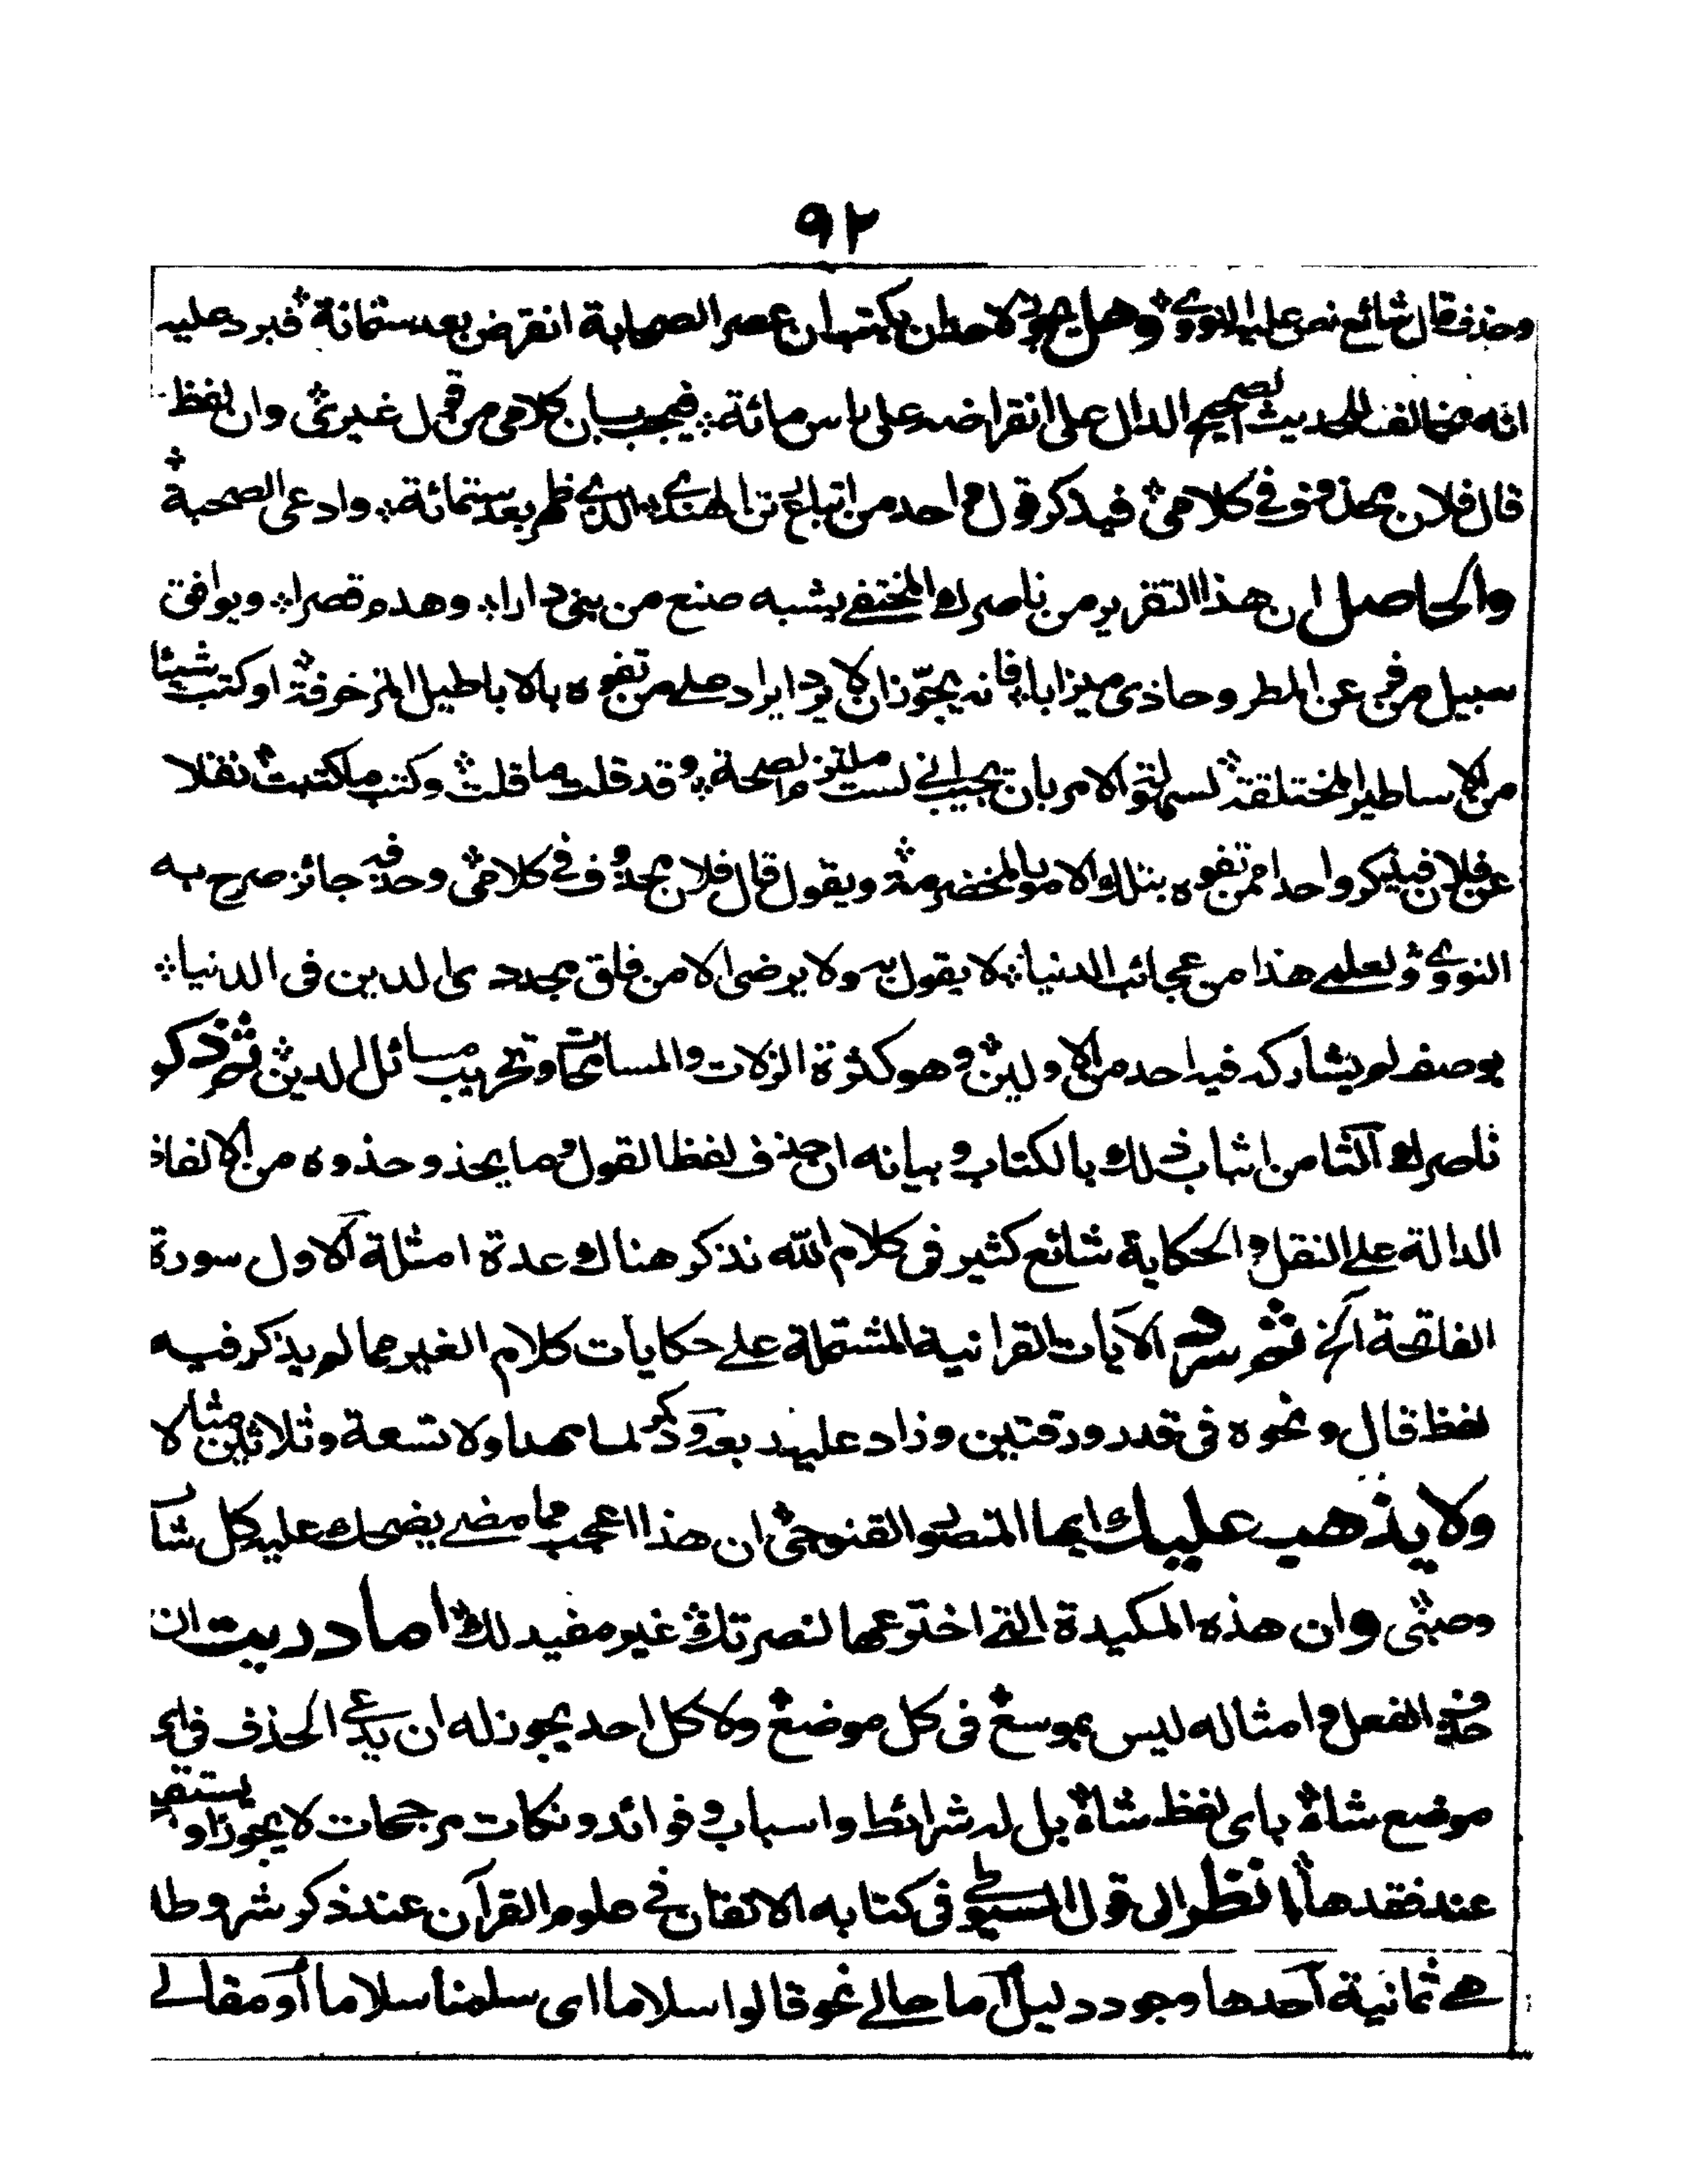 ٩٢
وحذف قال شائع نص عليه النووي وهل يجوز لاحد ان يكتب ان عصر الصحابة انقرض بعد ستمائة فيرد عليه
انه مخالف للحديث الصحيح الدال على انقراضه على راس مائة فيجيب بان كلامي من قول غيري وان لفظ
قال فلان محذوف في كلامي فيذكر قول احد من اتباع رتن الهندي الذي ظهر بعد ستمائة وادعى الصحبة
والحاصل ان هذا التقرير من ناصرك المختفي يشبه صنع من بنى دارا وهدم قصرا ويوافق
سبيل من فر عن المطر وحاذى ميزابا فانه يجوز ان لا يرد ايراد على من تفوه بالاباطيل المزخرفة او كتب شيئا
من الاساطير المختلقة لسهولة الامر بان يجيب اني لست ملتزم الصحة وقد قلت ما قلت وكتبت ما كتبت نقلا
عن فلان فيذكر واحدا ممن تفوه بتلك الامور المخضرمة ويقول قال فلان محذوف في كلامي وحذفه جائز صرح به
النووي ولعلمي هذا من عجائب الدنيا لا يقول به ولا يرضى الا من فاق مجددي الدين في الدنيا
بوصف لم يشاركه فيه احد من الاولين وهو كثرة الزلات والمسامحات وتخريب مسائل الدين ثم ذكر
ناصرك الثامن اثبات ذلك بالكتاب وبيانه ان حذف لفظ القول وما يحذو حذوه من الالفاظ
الدالة على النقل والحكاية شائع كثير في كلام الله نذكر هناك عدة امثلة الاول سورة
الفاتحة الخ ثم سرد الآيات القرانية المشتملة على حكايات كلام الغير مما لم يذكر فيه
لفظ قال ونحوه في قدر ورقتين وزاد عليه بعد وذكر لما مهد اولا تسعة وثلاثين مثالا
ولا يذهب عليك ايها المنصور القنوجي ان هذا اعجب مما مضى يضحك عليه كل شاب
وصبي وان هذه المكيدة التي اخترعها لنصرتك غير مفيد لك اما دريت ان
حذف الفعل وامثاله ليس بموسع في كل موضع ولا كل احد يجوز له ان يدعي الحذف في اي
موضع شاء باي لفظ شاء بل له شرائط واسباب وفوائد ونكات مرجحات لا يجوز او يستقبح
عند فقدها انظر الى قول السيوطي في كتابه الاتقان في علوم القرآن عند ذكر شروطا
هي ثمانية آحدها وجود دليل اما حالي نحو قالوا سلاما اى سلمنا سلاما أو مقالي